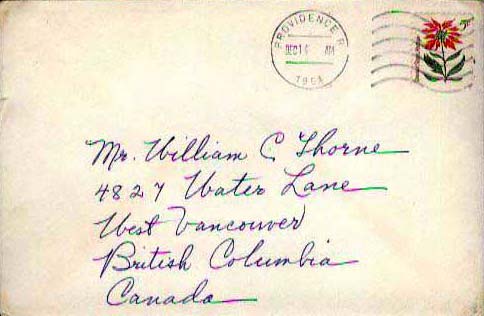 PROVIDENCE R.
DEC 14 AM
5¢
Mr. William C Thorne
4827 Water Lane
West Vancouver
British Columbia
Canada